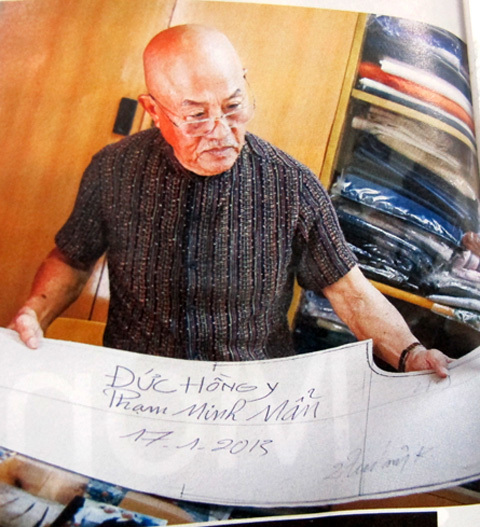 ĐỨC HỒNG Y
Phạm Minh Mẫn
17-1-2013
2